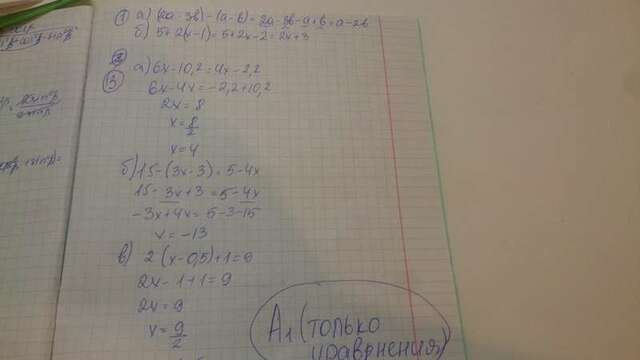 ① а) (2a-3b)-(a-b)=2a-3b-a+b=a-2b
б) 5+2(x-1)=5+2x-2=2x+3
②
③ а) 6x-10,2=4x-2,2
6x-4x=-2,2+10,2
2x=8
x=8/2
x=4
б) 15-(3x-3)=5-4x
15-3x+3=5-4x
-3x+4x=5-3-15
x=-13
в) 2(x-0,5)+1=9
2x-1+1=9
2x=9
x=9/2
А1 (только
уравнения)